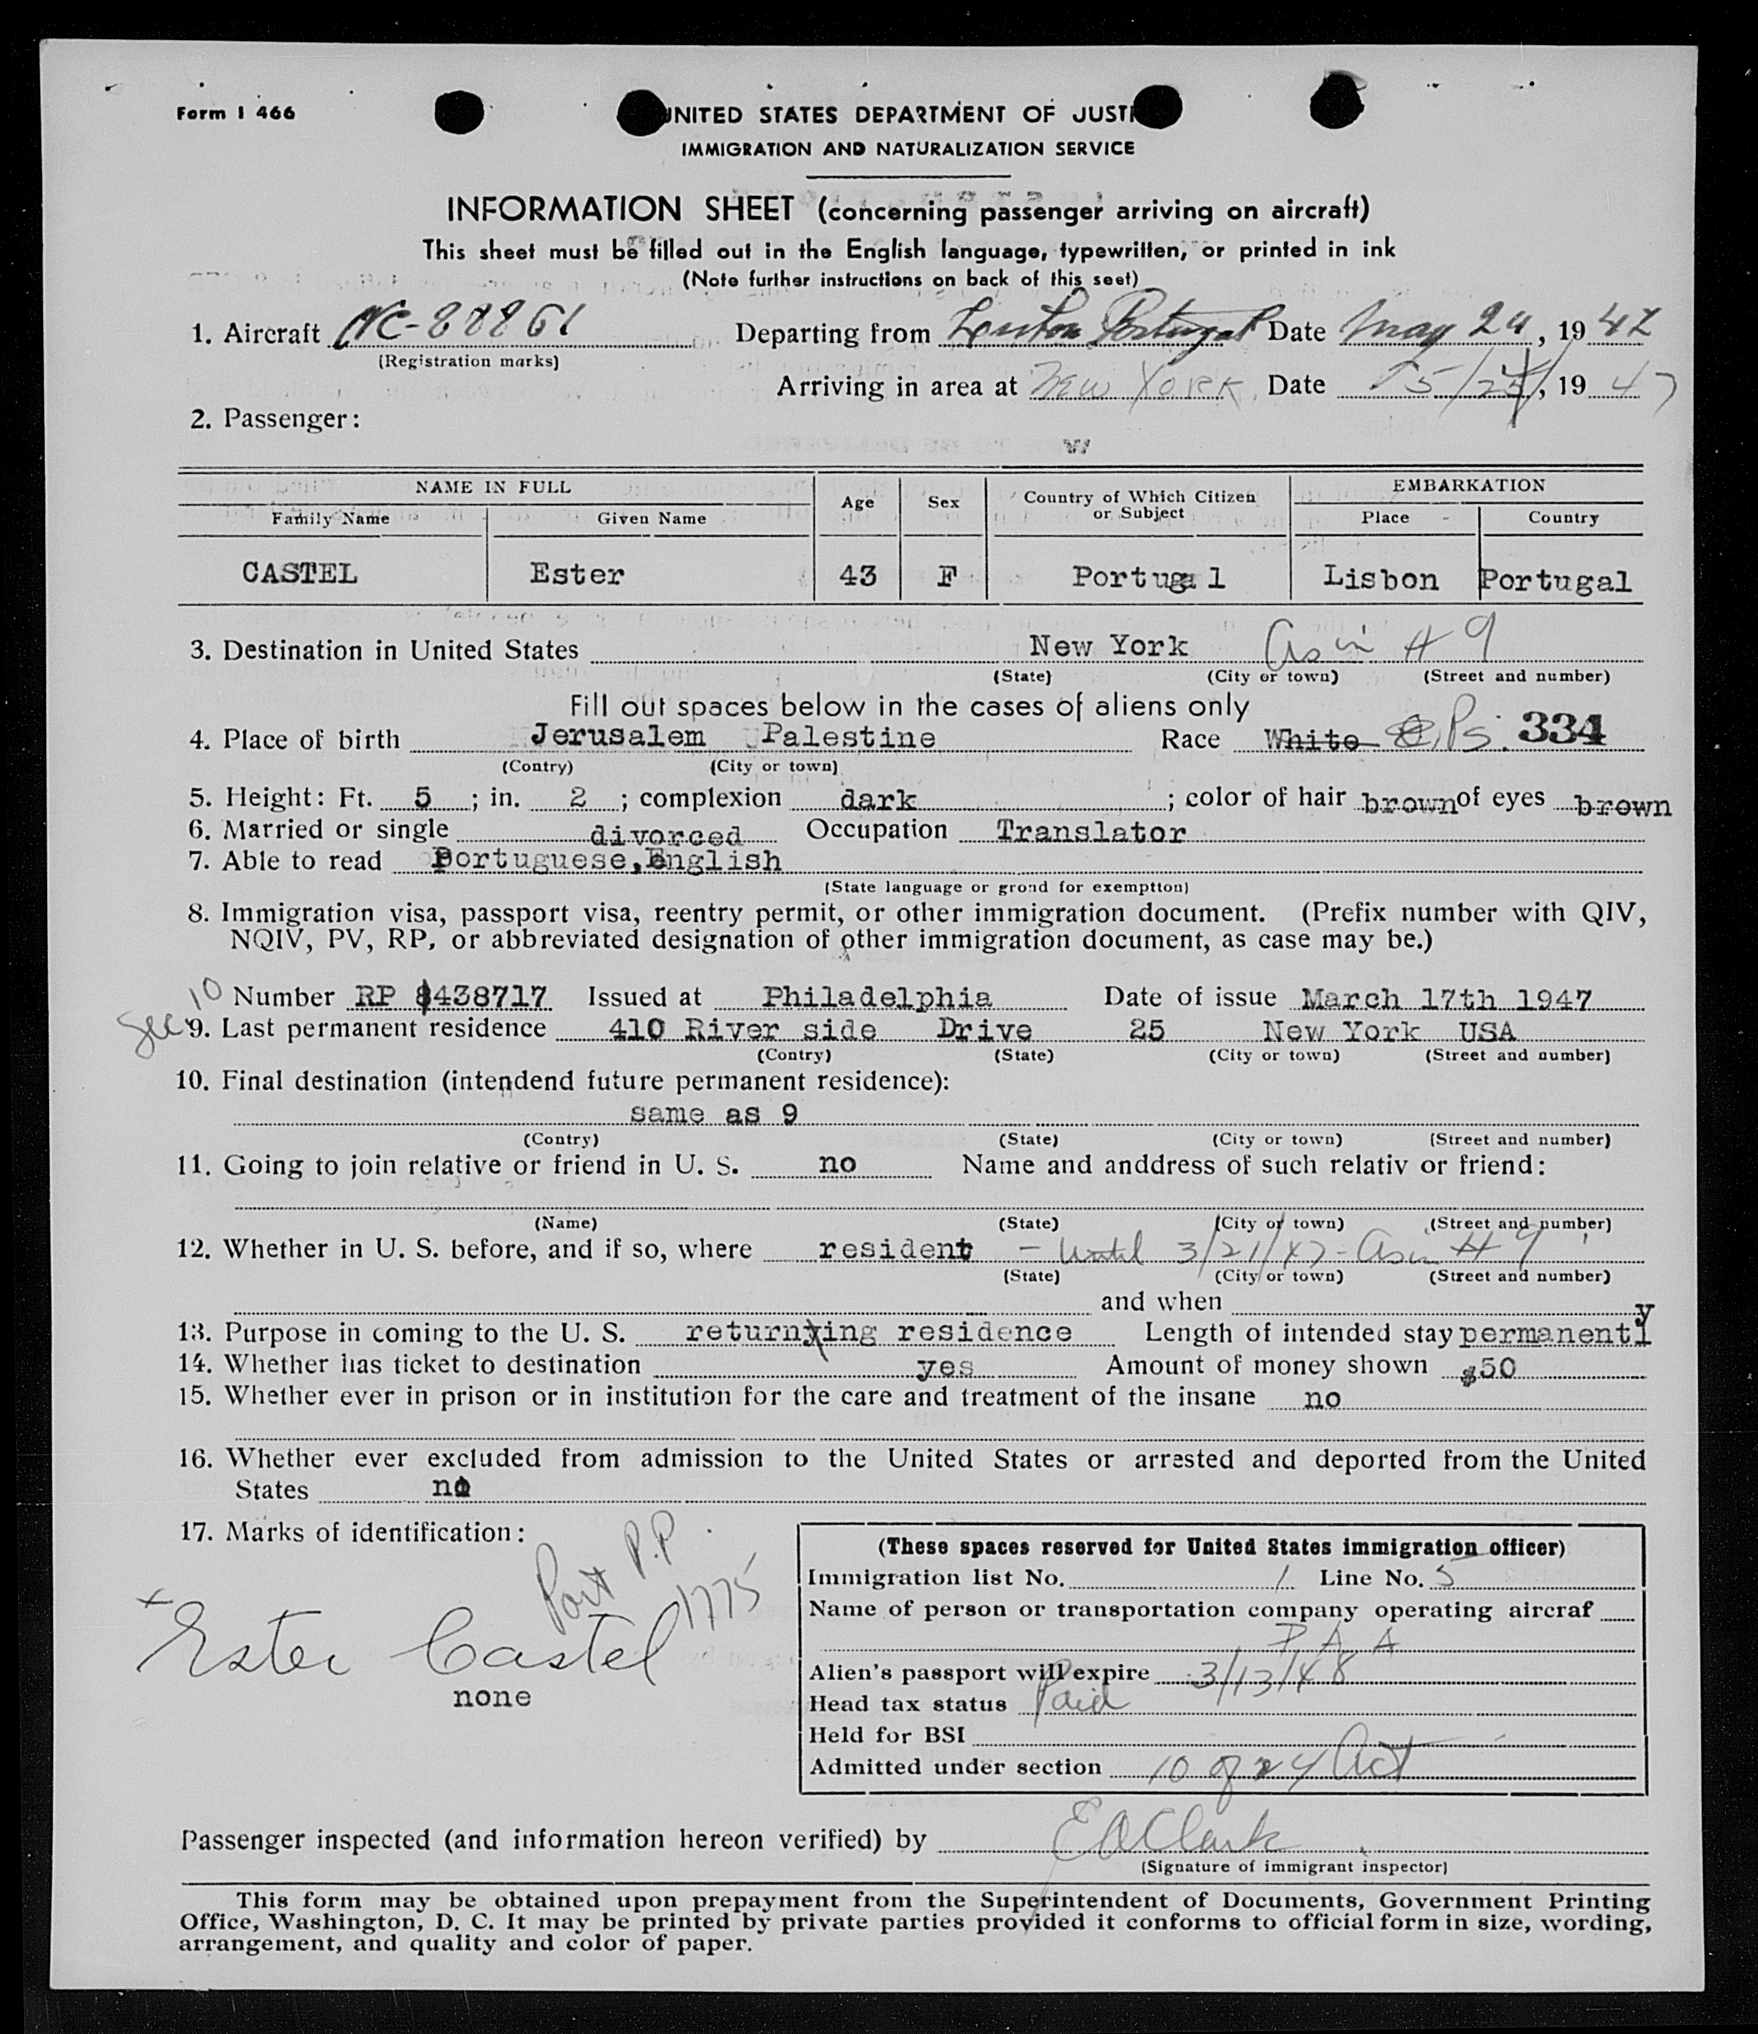 Form I 466
UNITED STATES DEPARTMENT OF JUSTI
IMMIGRATION AND NATURALIZATION SERVICE
INFORMATION SHEET (concerning passenger arriving on aircraft)
This sheet must be filled out in the English language, typewritten, or printed in ink
(Note further instructions on back of this seet)
1. Aircraft NC-88861 Departing from Lisbon Portugal Date May 24, 1947
(Registration marks)
Arriving in area at New York Date 5/25/, 1947
2. Passenger:
NAME IN FULL Age Sex Country of Which Citizen or Subject EMBARKATION
Family Name Given Name Place Country
CASTEL Ester 43 F Portugal Lisbon Portugal
3. Destination in United States New York as in #9
(State) (City or town) (Street and number)
Fill out spaces below in the cases of aliens only
4. Place of birth Jerusalem Palestine Race White Ps. 334
(Contry) (City or town)
5. Height: Ft. 5; in. 2; complexion dark; color of hair brown of eyes brown
6. Married or single divorced Occupation Translator
7. Able to read Portuguese, English
(State language or grond for exemption)
8. Immigration visa, passport visa, reentry permit, or other immigration document. (Prefix number with QIV,
NQIV, PV, RP, or abbreviated designation of other immigration document, as case may be.)
10 Number RP 438717 Issued at Philadelphia Date of issue March 17th 1947
Sec 9. Last permanent residence 410 River side Drive 25 New York USA
(Contry) (State) (City or town) (Street and number)
10. Final destination (intendend future permanent residence):
same as 9
(Contry) (State) (City or town) (Street and number)
11. Going to join relative or friend in U. S. no Name and anddress of such relativ or friend:
(Name) (State) (City or town) (Street and number)
12. Whether in U. S. before, and if so, where resident - Until 3/21/47 - as in #9
(State) (City or town) (Street and number)
and when
13. Purpose in coming to the U. S. returning residence Length of intended stay permanently
14. Whether has ticket to destination yes Amount of money shown $50
15. Whether ever in prison or in institution for the care and treatment of the insane no
16. Whether ever excluded from admission to the United States or arrested and deported from the United
States no
17. Marks of identification:
Port P.P. 1775
x Ester Castel
none
(These spaces reserved for United States immigration officer)
Immigration list No. 1 Line No. 5
Name of person or transportation company operating aircraf
P A A
Alien's passport will expire 3/13/48
Head tax status Paid
Held for BSI
Admitted under section 10 of 24 Act
Passenger inspected (and information hereon verified) by E A Clark
(Signature of immigrant inspector)
This form may be obtained upon prepayment from the Superintendent of Documents, Government Printing
Office, Washington, D. C. It may be printed by private parties provided it conforms to official form in size, wording,
arrangement, and quality and color of paper.